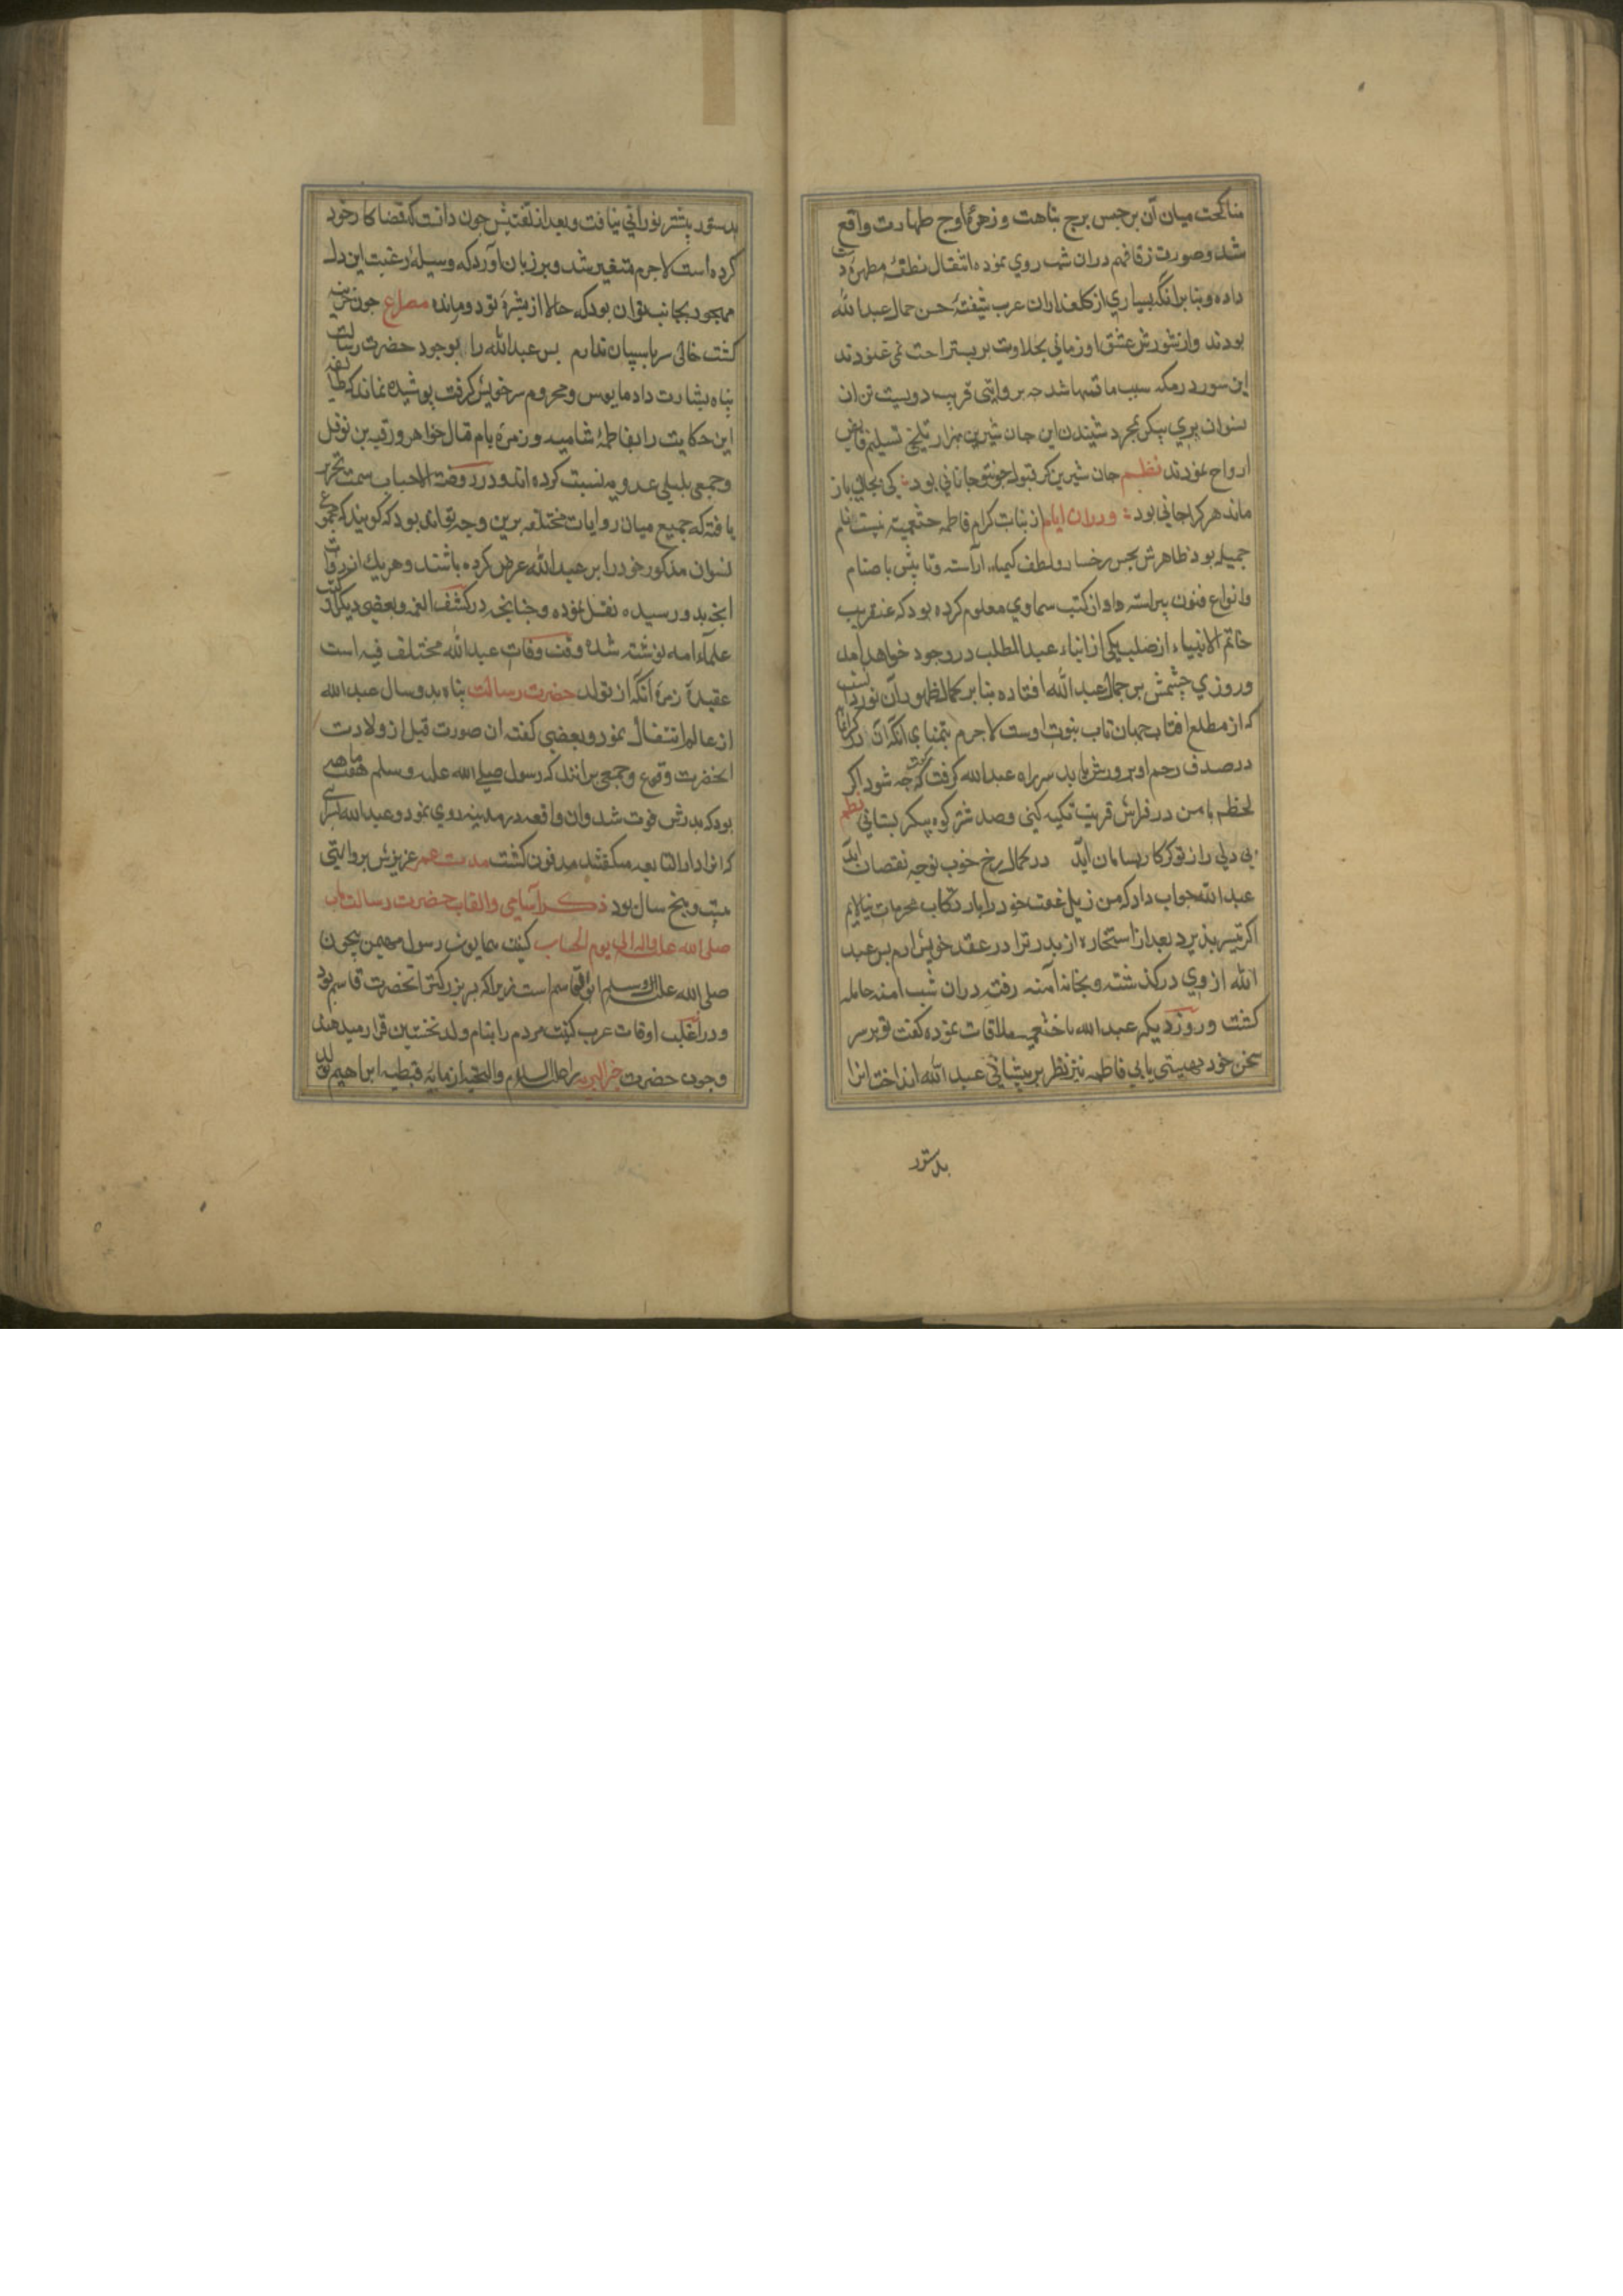 مناکحت میان آن برجیس برج نباهت و زهرهٔ اوج طهارت واقع
شد و صورت زفاف هم دران شب روی نموده انتقال نطفهٔ مطهره دست
داده و بنابر انکه بسیاری از کلعذاران عرب شیفتهٔ حسن جمال عبدالله
بودند و از شورش عشق او زمانی بحلاوت بر بستر راحت نمی غنودند
این سور در مکه سبب ماتمها شد چه بروایتی قریب دویست تن از
نسوان پری پیکر بمجرد شنیدن این جان شیرین بهزار تلخی تسلیم قابض
ارواح نمودند نظم جان شیرین کر قبول جونتو جانانی بود کی بجانی باز
ماند هر کرا جانی بود و دران ایام از بنات کرام فاطمه خثعمیه نام
جمیله بود ظاهرش بحسن رخسار و لطف آراسته
و انواع فنون پیراسته و او از کتب سماوی معلوم کرده بود که عنقریب
خاتم الانبیاء از صلب یکی از ابناء عبدالمطلب در وجود خواهد امد
و روزی چشمش بر جمال عبدالله افتاده بنابر کمال ظهور آن نور دانست
که از مطلع افتاب جهان تاب نبوت اوست لاجرم بتمنای انکه آن در کرانمایه
در صدف رحم او پرورش یابد سر راه عبدالله کرفت و کفت که چه شود اکر
لحظه با من در فراش قربت تکیه کنی و صد شتر کوه پیکر بستانی نظم
بی دلی را از تو کر کار بسامان اید در کمال رخ خوب تو چه نقصان اید
عبدالله جواب داد که من ذیل عفت خود را بارتکاب محرمات نیالایم
اکر تیسر پذیرد بعد از استخاره از پدر ترا در عقد خویش ارم پس عبد
الله از وی در کذشته و بخانهٔ آمنه رفته دران شب امنه حامله
کشت و روز دیکر عبدالله با خثعمیه ملاقات نموده کفت تو بر سر
سخن خود هستی یا نی فاطمه نیز نظر بر پیشانی عبدالله انداخت انرا
بدستور
بدستور پیشتر نورانی نیافت و بعد از تفتیش چون دانست که قضا کار خود
کرده است لاجرم متغیر شد و بر زبان آورد که وسیلهٔ رغبت این دل
مهجور بجانب تو ان بود که حالا از بشرهٔ تو دور مانده مصراع چون خزینه
کشت خالی سر پاسبان ندارم پس عبدالله را بوجود حضرت رسالت
پناه بشارت داد مایوس و محروم سر خویش کرفت پوشیده نماند که طایفه
این حکایت را بفاطمهٔ شامیه و زمرهٔ بام قتال خواهر ورقه بن نوفل
و جمعی بلیلی عدویه نسبت کرده اند و در روضة الاحباب سمت تحریر
یافته که جمیع میان روایات مختلفه برین وجه تواند بود که کویند که مجموع
نسوان مذکور خود را بر عبدالله عرض کرده باشند و هر یک از روات
انچه بدو رسیده نقل نموده و چنانچه در کشف الغمه و بعضی دیکر از کتب
علماء امه نوشته شده وقت وفات عبدالله مختلف فیه است
عقیدهٔ زمرهٔ آنکه از تولد حضرت رسالت پناه بدو سال عبدالله
از عالم انتقال نمود و بعضی کفته ان صورت قبل از ولادت
انحضرت وقوع و جمعی برانند که رسول صلی الله علیه و سلم هفت ماهه
بود که پدرش فوت شد و ان واقعه در مدینه روی نمود و عبدالله در سرای
که انرا دار النابغه میکفتند مدفون کشت مدت عمر عزیزش بروایتی
بیست و پنج سال بود ذکر آسامی و القاب حضرت رسالت مآب
صلی الله علیه و اله الی یوم الحساب کنیت همایون رسول مهیمن بیچون
صلی الله علیه و اله و سلم ابو القاسم است زیرا که پسر بزرکتر انحضرت قاسم بود
و در اغلب اوقات عرب کنیت مردم را بنام ولد نخستین قرار میدهند
و چون حضرت خیر البریه را علیه السلام و التحیه از ماریهٔ قبطیه ابراهیم تولد